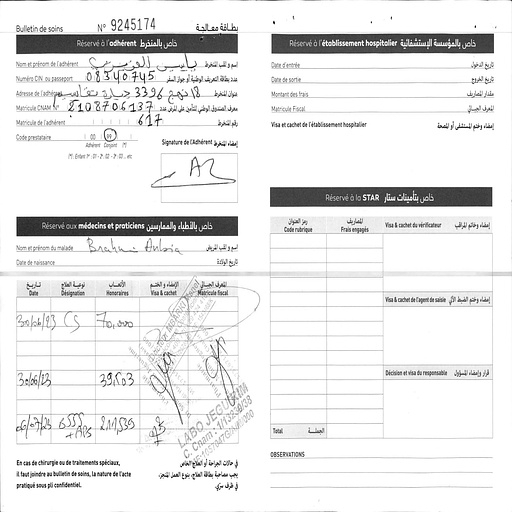 Bulletin de soins N° 9245174 بطاقة معالجة
Réservé à l'adhérent خاص بالمنخرط
Nom et prénom de l'adhérent اسم و لقب المنخرط
Numéro CIN ou passeport 08340745 عدد بطاقة التعريف الوطنية أو جواز السفر
Adresse de l'adhérent 18 نهج 3396 عنوان المنخرط
Matricule CNAM 2108706137
Matricule de l'adhérent 617 رقم المنخرط
Code prestataire 00 99
Adhérent Conjoint (*)
(*) Enfant 1er : 01 - 2e : 02 - 3e : 03 ... etc
Signature de l'Adhérent إمضاء المنخرط
Réservé aux médecins et praticiens خاص بالأطباء والممارسين
Nom et prénom du malade Brahmi اسم و لقب المريض
Date de naissance تاريخ الولادة
تاريخ نوعية العلاج الأتعاب الإمضاء و الختم المعرف الجبائي
Date Désignation Honoraires Visa & cachet Matricule fiscal
30/06/23 CS 70,000
30/06/23 39,503
06/07/23 211,535
LABO JEGUIRIM
En cas de chirurgie ou de traitements spéciaux,
il faut joindre au bulletin de soins, la nature de l'acte
pratiqué sous pli confidentiel.
في حالات الجراحة أو العلاج الخاص
يجب مصاحبة بطاقة العلاج، بنوع العمل المنجز،
في ظرف سري.
Réservé à l'établissement hospitalier خاص بالمؤسسة الإستشفائية
Date d'entrée تاريخ الدخول
Date de sortie تاريخ الخروج
Montant des frais مقدار المصاريف
Matricule Fiscal المعرف الجبائي
Visa et cachet de l'établissement hospitalier إمضاء وختم المستشفى أو المصحة
Réservé à la STAR خاص بتأمينات ستار
رمز العنوان المصاريف
Code rubrique Frais engagés
Visa & cachet du vérificateur إمضاء وخاتم المراقب
Visa & cachet de l'agent de saisie
Décision et visa du responsable قرار وإمضاء المسؤول
Total الجملة
OBSERVATIONS